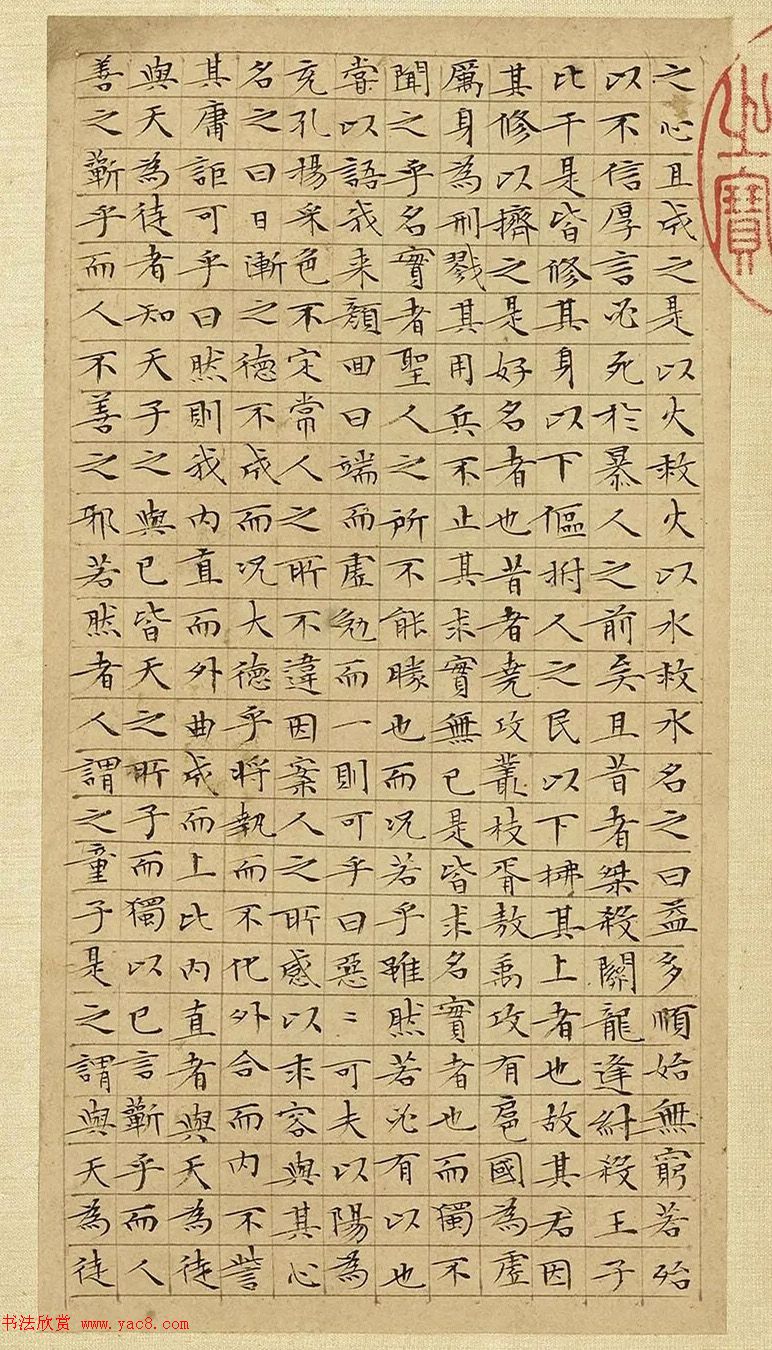 之心且成之是以火救火以水救水名之曰益多順始無窮若殆
以不信厚言必死於暴人之前矣且昔者桀殺關龍逢紂殺王子
比干是皆修其身以下傴拊人之民以下拂其上者也故其君因
其修以擠之是好名者也昔者堯攻叢枝胥敖禹攻有扈國為虛
厲身為刑戮其用兵不止其求實無已是皆求名實者也而獨不
聞之乎名實者聖人之所不能勝也而况若乎雖然若必有以也
嘗以語我来顏回曰端而虛勉而一則可乎曰惡〻可夫以陽為
充孔揚采色不定常人之所不違因案人之所感以求容與其心
名之曰日漸之德不成而况大德乎将執而不化外合而內不訾
其庸詎可乎曰然則我內直而外曲成而上比內直者與天為徒
與天為徒者知天子之與已皆天之所子而獨以已言蘄乎而人
善之蘄乎而人不善之邪若然者人謂之童子是之謂與天為徒
寶
书法欣赏 www.yac8.com